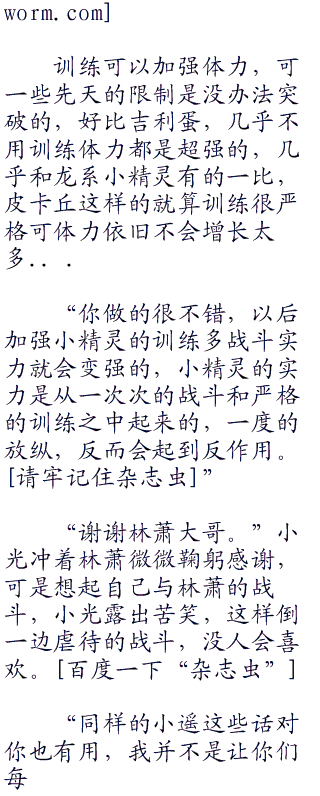 worm.com]
训练可以加强体力，可
一些先天的限制是没办法突
破的，好比吉利蛋，几乎不
用训练体力都是超强的，几
乎和龙系小精灵有的一比，
皮卡丘这样的就算训练很严
格可体力依旧不会增长太
多．．．
“你做的很不错，以后
加强小精灵的训练多战斗实
力就会变强的，小精灵的实
力是从一次次的战斗和严格
的训练之中起来的，一度的
放纵，反而会起到反作用。
[请牢记住杂志虫]”
“谢谢林萧大哥。”小
光冲着林萧微微鞠躬感谢，
可是想起自己与林萧的战
斗，小光露出苦笑，这样倒
一边虐待的战斗，没人会喜
欢。[百度一下“杂志虫”]
“同样的小遥这些话对
你也有用，我并不是让你们
每